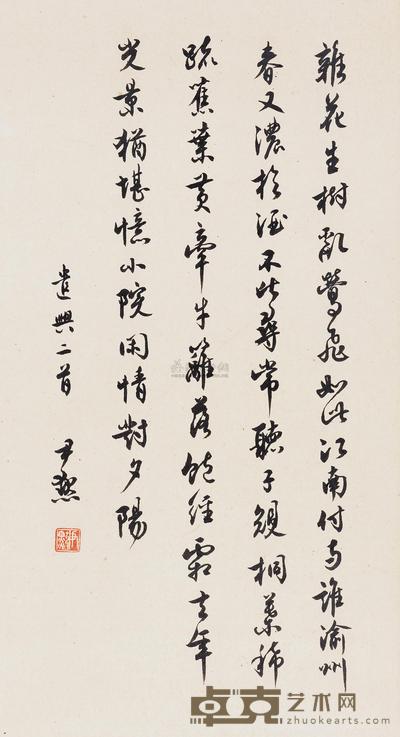 雜花生樹亂鶯飛如此江南付与誰渝州
春又濃於酒不比尋常聽子規桐葉稀
疏蕉葉黃牽牛籬落飽經霜去年
光景猶堪憶小院閑情對夕陽
遣興二首 尹默
卓克艺术网
zhuokearts.com